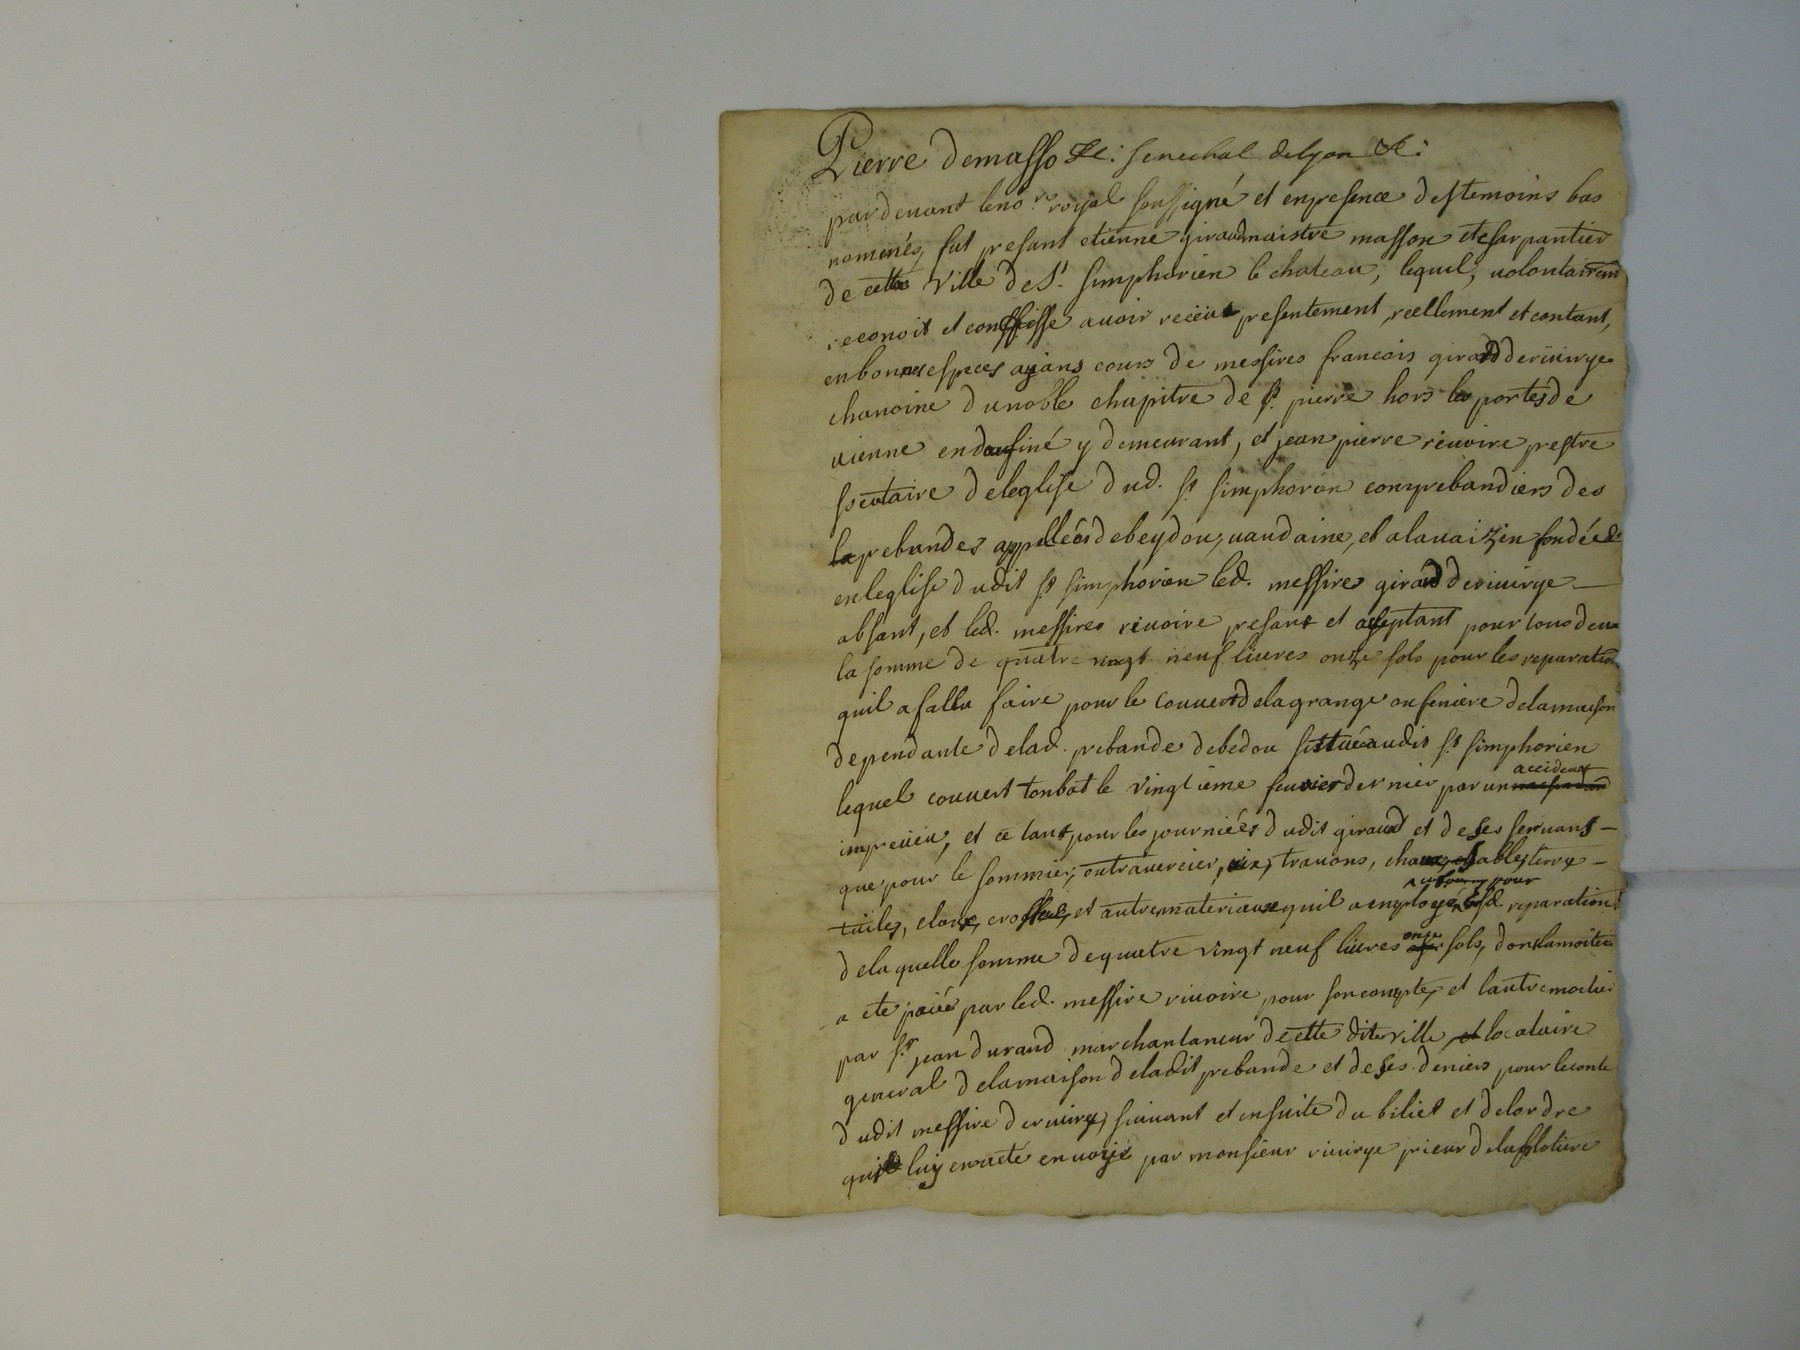 Pierre Demasso &c: senechal delyon &c:
pardevant leno.re royal soussigné et enpresence destemoins bas
nommés, fut presant etienne giraud maistre masson etcharpantier
de cette Ville de St. simphorien le chateau, lequel, volontairem
reconoit et confesse avoir receüe presentement, reellement et contant,
enbonnes espèces ayans cours de messires francois girard derivirye
chanoine dunoble chapitre de St. pierre hors les portes de
vienne endaufiné y demeurant, et jean pierre rivoire prestre
sSotaire deleglise dud. St simphorien comprebandiers des
la prebandes appelleés debeydou, vaudaine, et alavaizin fondéed
enleglise dudit St simphorien led. messires girard derivirye
absant, et led. messires rivoire presant et aceptant pour tous deux
la somme de quatre vingt neuf livres onze sols pour les reparation
quil a fallu faire pour le couvert delagrange ou feniere delamaison
dependante delad. prebande debedou sittuéaudit St simphorien
lequel couvert tonbat le vingtieme fevrier dernier par un accidant
impreveu, et ce tant pour les journiéés dudit giraud et deses servans
que pour le sommier, entravercier, aix, travons, chaux, sable, terre
tuiles, cloux, et autre materiaux quil a employé lesd. reparations
delaquelle somme dequatre vingt neuf livres onze sols, dont lamoitié
a été paiée par led. messire rivoire pour soncompte, et lautre moitié
par Sr. jean durand marchantaneur decette dite ville, et locataire
general delamaison deladit prebande et deses deniers pour leconte
dudit messire derivirye, suivant et ensuite du biliet et delordre
quil luy enaeté envoyié par monsieur rivirye prieur delaplatiere